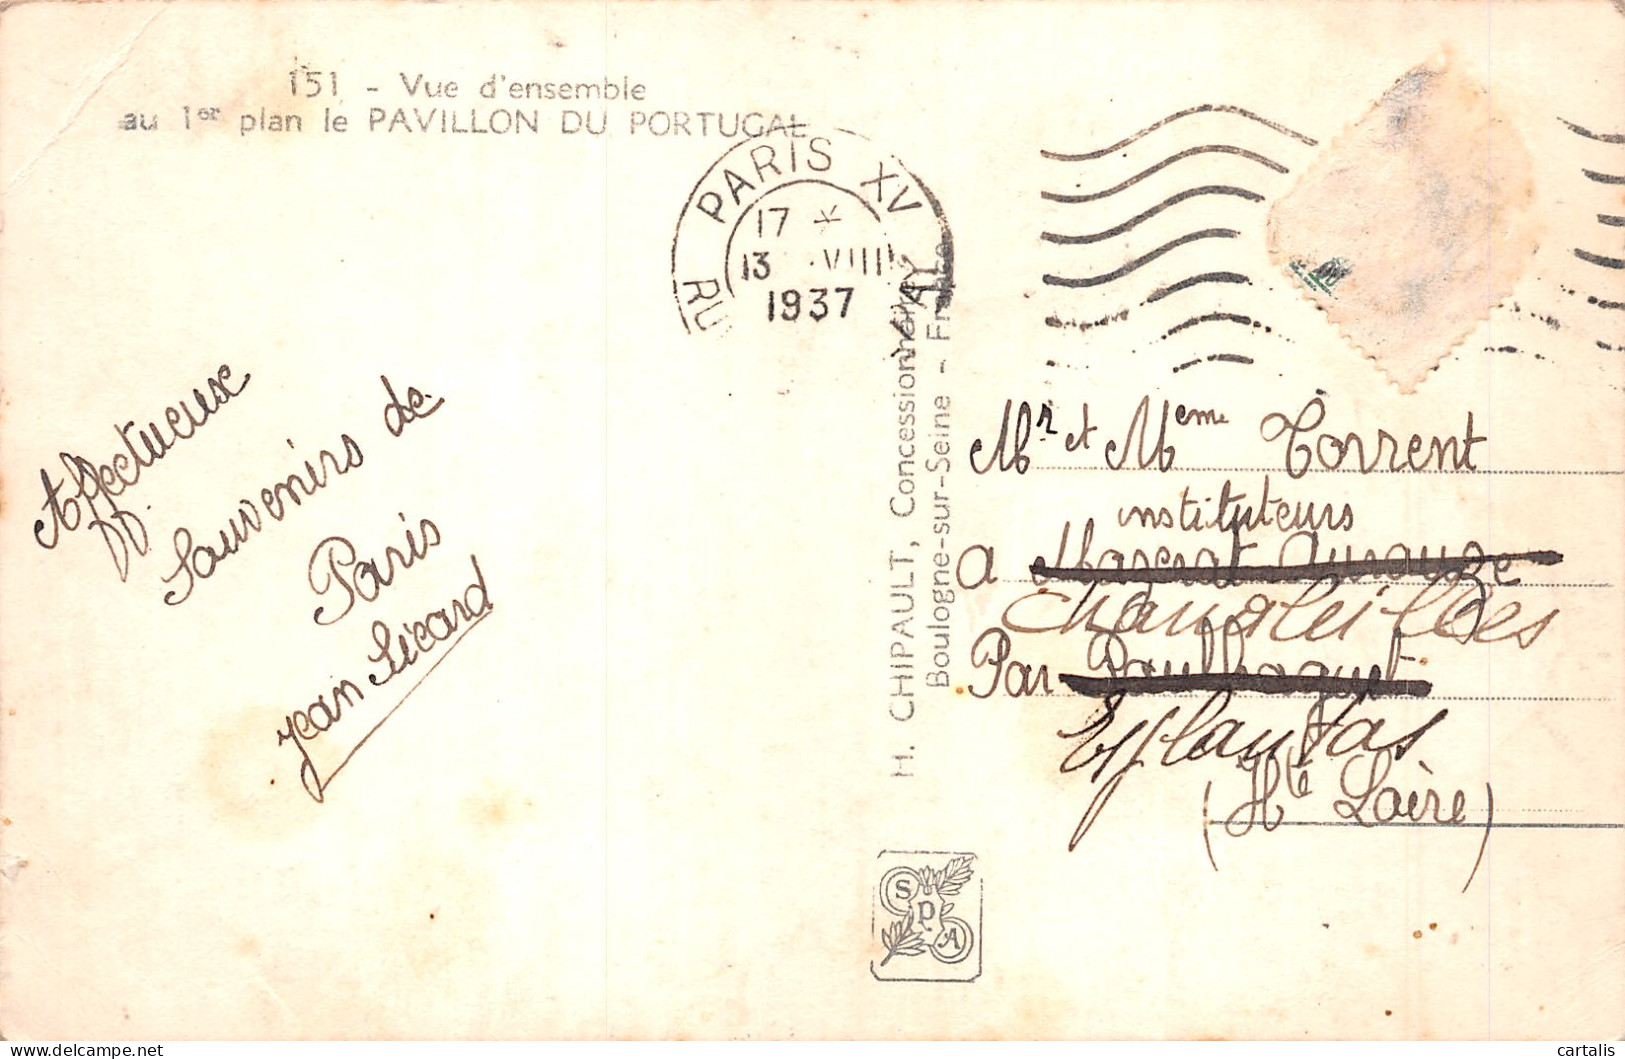 151 - Vue d'ensemble
au 1er plan le PAVILLON DU PORTUGAL
PARIS XV
17 *
13 VIII
1937
RU
Affectueux
Souvenirs de
Paris
Jean Sicard
H. CHIPAULT, Concessionnaire
Boulogne-sur-Seine - France
Mr et Meme Torrent
instituteurs
a
Chanaleilles
Par Paulhaguet
Esplantas
(Hte Loire)
SPA
cartalis